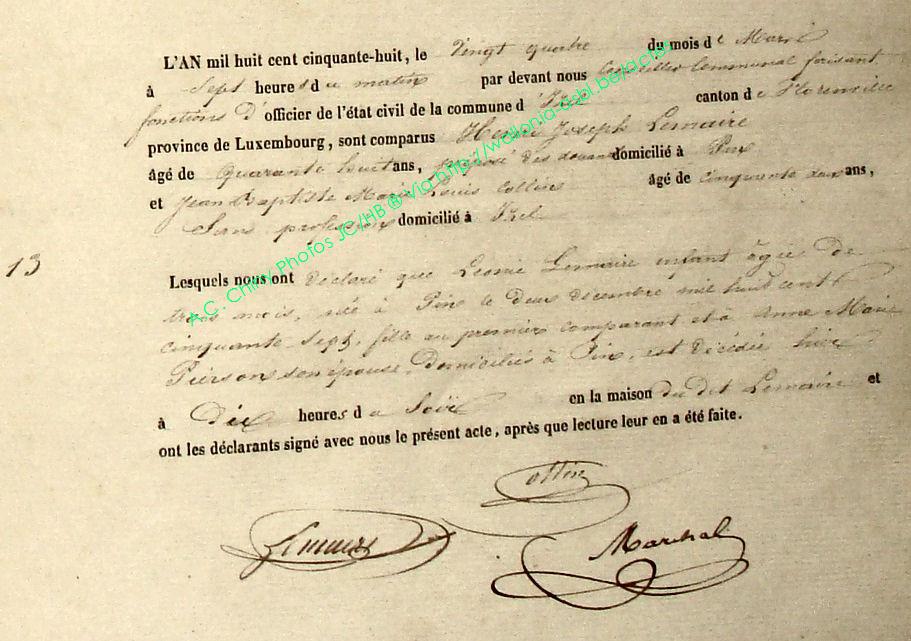 L'AN mil huit cent cinquante-huit, le vingt quatre du mois de Mars
à Sept heures du matin par devant nous Conseiller Communal faisant
fonctions d'officier de l'état civil de la commune d'Izel canton de Florenville
province de Luxembourg, sont comparus Henri Joseph Lemaire
âgé de quarante huit ans, préposé des douanes domicilié à Pin
et Jean Baptiste Marie Louis Collin âgé de cinquante deux ans,
Sans profession domicilié à Izel
13
Lesquels nous ont déclaré que Léonie Lemaire enfant âgée de
trois mois, née à Pin le deux décembre mil huit cent
cinquante sept, fille au premier comparant et à Anne Marie
Pierson son épouse, domiciliés à Pin, est décédée hier
à Dix heures du Soir en la maison du dit Lemaire et
ont les déclarants signé avec nous le présent acte, après que lecture leur en a été faite.
Collin
Lemaire
Marchal
A.C. Chiny Photos JC/HB ® via http://wallonia-asbl.be/actes